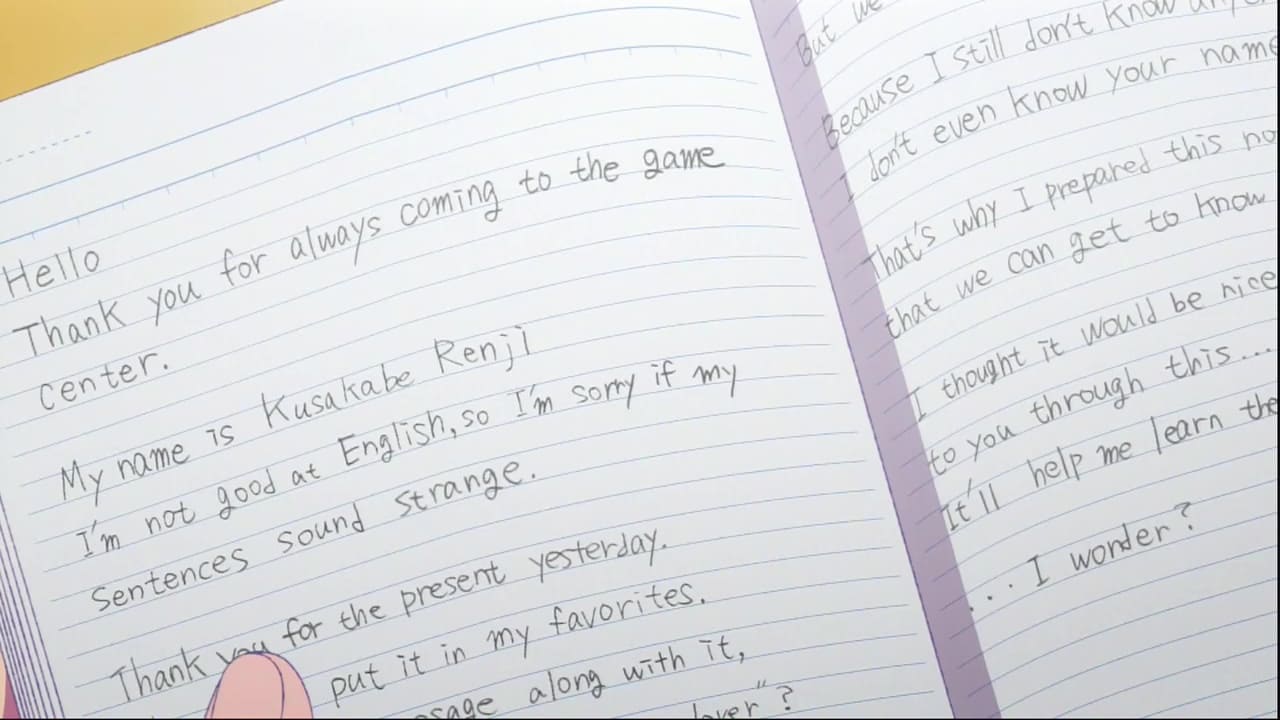 Hello
Thank you for always coming to the game
center.
My name is Kusakabe Renji
I'm not good at English, so I'm sorry if my
sentences sound strange.
Thank you for the present yesterday.
put it in my favorites.
along with it,
But we
Because I still don't know
I don't even know your name
That's why I prepared this
that we can get to know
I thought it would be nice
to you through this...
It'll help me learn the
...I wonder?